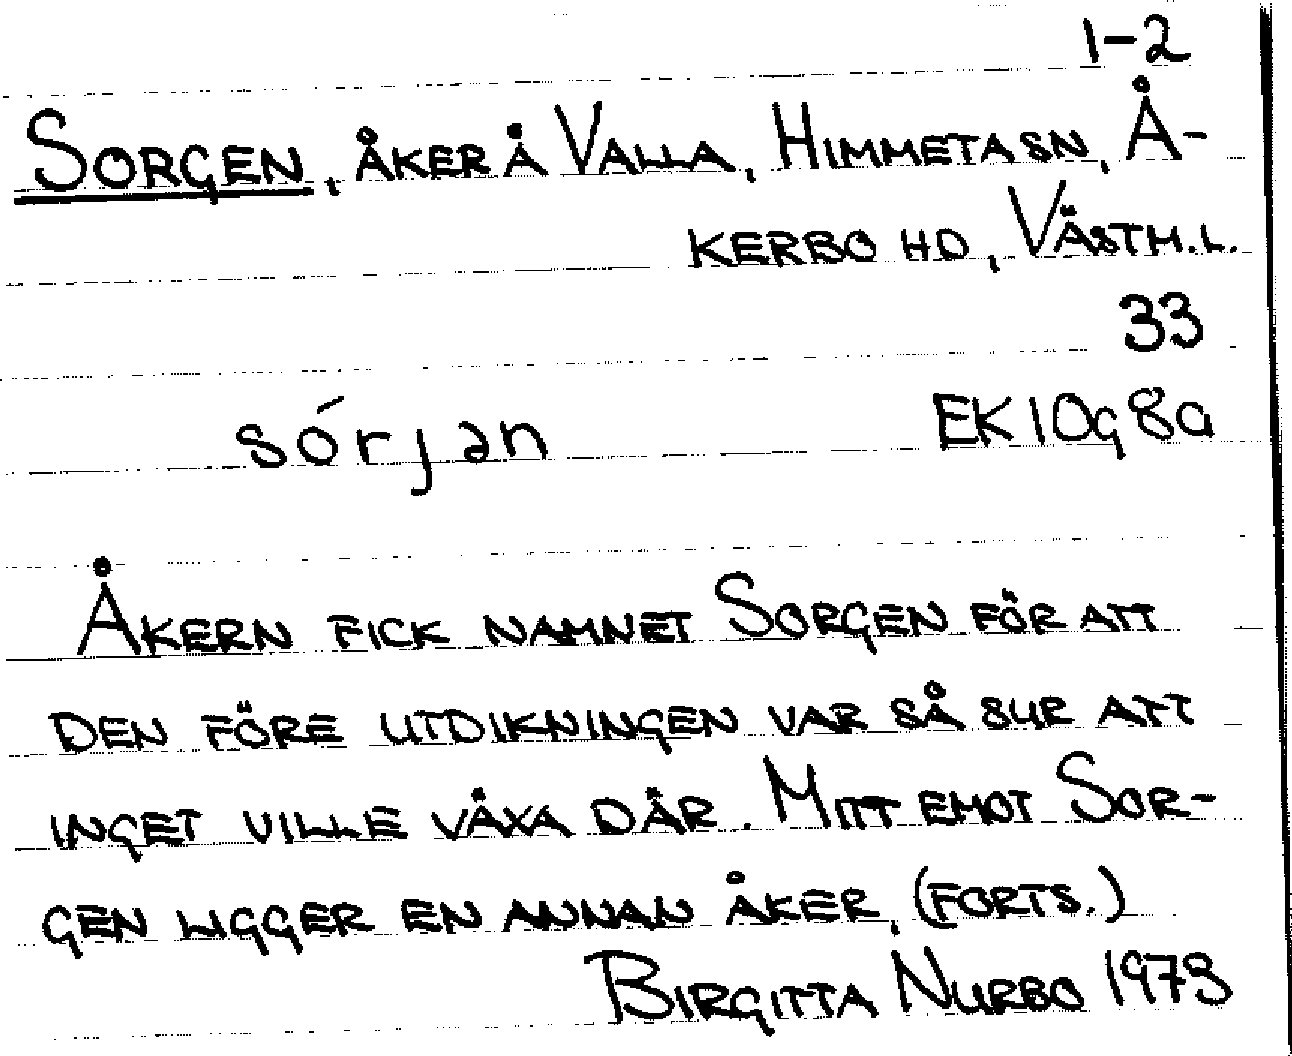 1-2
SORGEN, ÅKER Å VALLA, HIMMETA SN, Å-
KERBO HD, VÄSTM.L.
33
sórjan EK10g8a
ÅKERN FICK NAMNET SORGEN FÖR ATT
DEN FÖRE UTDIKNINGEN VAR SÅ SUR ATT
INGET VILLE VÄXA DÄR. MITT EMOT SOR-
GEN LIGGER EN ANNAN ÅKER, (FORTS.)
BIRGITTA NURBO 1973